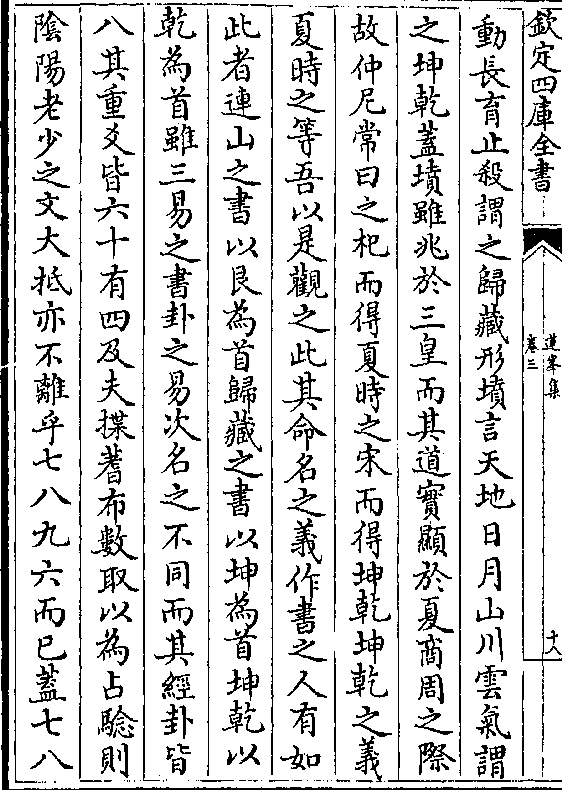 欽定四庫全書
蓮峯集
卷三
十八
動長育止殺謂之歸藏形墳言天地日月山川雲氣謂
之坤乾蓋墳雖兆於三皇而其道實顯於夏商周之際
故仲尼常曰之杞而得夏時之宋而得坤乾坤乾之義
夏時之等吾以是觀之此其命名之義作書之人有如
此者連山之書以艮為首歸藏之書以坤為首坤乾以
乾為首雖三易之書卦之易次名之不同而其經卦皆
八其重爻皆六十有四及夫揲蓍布數取以為占驗則
陰陽老少之文大抵亦不離乎七八九六而已蓋七八